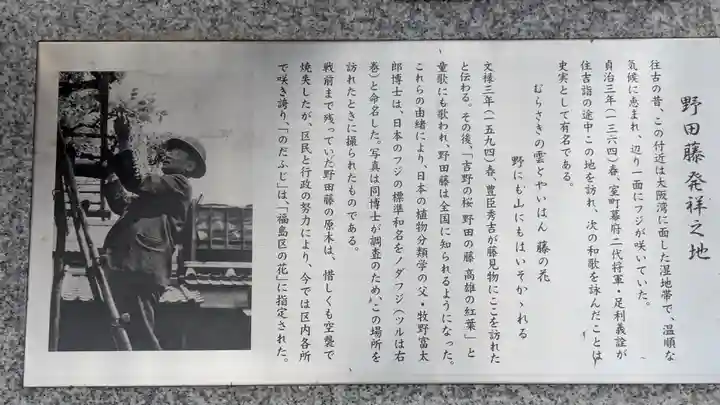 野田藤発祥之地
往古の昔、この付近は大阪湾に面した湿地帯で、温順な
気候に恵まれ、辺り一面にフジが咲いていた。
貞治三年(一三六四)春、室町幕府二代将軍・足利義詮が
住吉詣の途中この地を訪れ、次の和歌を詠んだことは
史実として有名である。
むらさきの雲とやいはん 藤の花
野にも山にもはいそかゝれる
文禄三年(一五九四)春、豊臣秀吉が藤見物にここを訪れた
と伝わる。その後、「吉野の桜 野田の藤 高雄の紅葉」と
童歌にも歌われ、野田藤は全国に知られるようになった。
これらの由緒により、日本の植物分類学の父・牧野富太
郎博士は、日本のフジの標準和名をノダフジ(ツルは右
巻)と命名した。写真は同博士が調査のため、この場所を
訪れたときに撮られたものである。
戦前まで残っていた野田藤の原木は、惜しくも空襲で
焼失したが、区民と行政の努力により、今では区内各所
で咲き誇り、「のだふじ」は「福島区の花」に指定された。